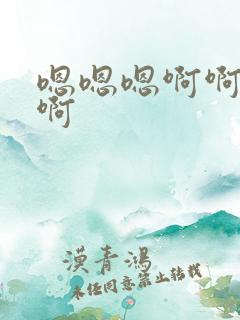 嗯嗯嗯啊啊
啊
漠青鸿
未经同意禁止转载